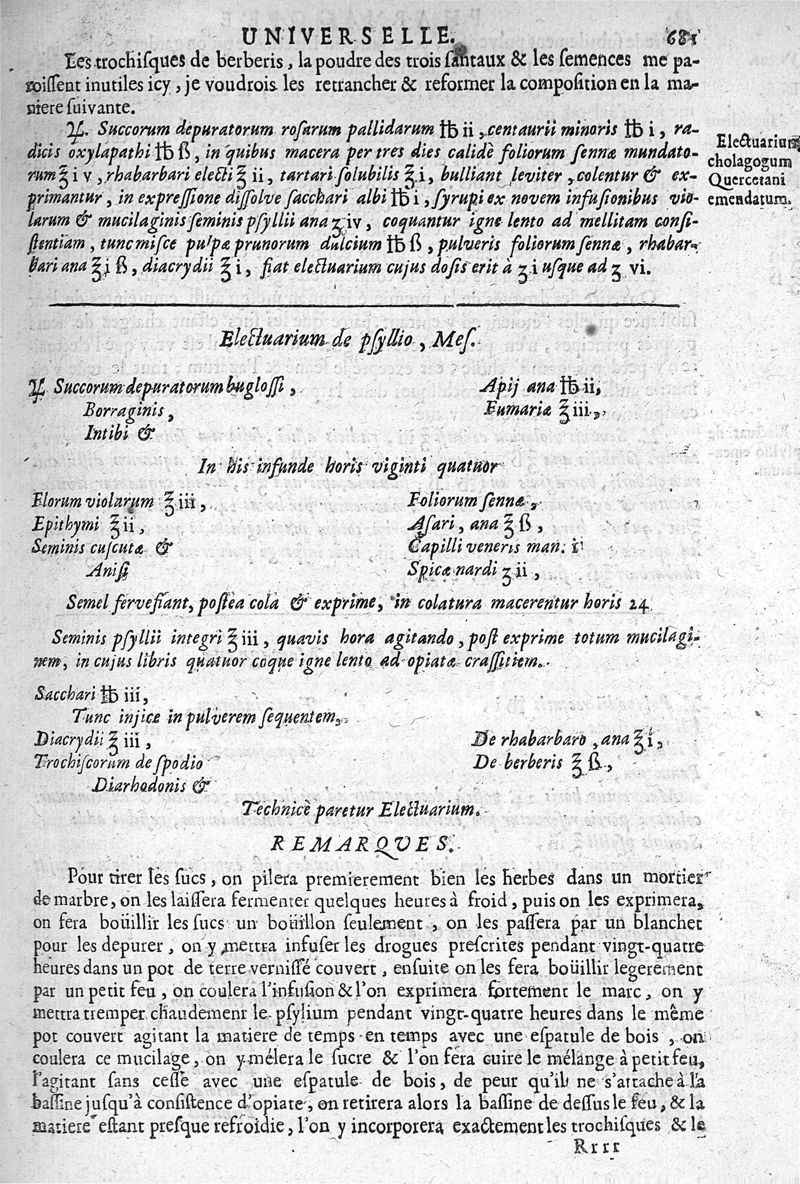 UNIVERSELLE. 681
Les trochisques de berberis, la poudre des trois santaux & les semences me pa-
roissent inutiles icy, je voudrois les retrancher & reformer la composition en la ma-
niere suivante.
♃. Succorum depuratorum rosarum pallidarum ℔ ii, centaurii minoris ℔ i, ra-
dicis oxylapathi ℔ ß, in quibus macera per tres dies calidè foliorum sennæ mundato-
rum ℥ i v, rhabarbari electi ℥ ii, tartari solubilis ℥ i, bulliant leviter, colentur & ex-
primantur, in expressione dissolve sacchari albi ℔ i, syrupi ex novem infusionibus vio-
larum & mucilaginis seminis psyllii ana ʒ iv, coquantur igne lento ad mellitam consi-
stentiam, tunc misce pulpæ prunorum dulcium ℔ ß, pulveris foliorum sennæ, rhabar-
bari ana ℥ i ß, diacrydii ℥ i, fiat electuarium cujus dosis erit à ʒ i usque ad ʒ vi.
Electuarium
cholagogum
Quercetani
emendatum.
Electuarium de psyllio, Mes.
♃ Succorum depuratorum buglossi,
Borraginis,
Intibi &
Apij ana ℔ ii,
Fumariæ ℥ iii,
In his infunde horis viginti quatuor
Florum violarum ℥ iii,
Epithymi ℥ ii,
Seminis cuscutæ &
Anisi
Foliorum sennæ,
Asari, ana ℥ ß,
Capilli veneris man. i
Spicæ nardi ʒ ii,
Semel fervefiant, postea cola & exprime, in colatura macerentur horis 24
Seminis psyllii integri ℥ iii, quavis hora agitando, post exprime totum mucilagi-
nem, in cujus libris quatuor coque igne lento ad opiatæ crassitiem.
Sacchari ℔ iii,
Tunc injice in pulverem sequentem,
Diacrydii ℥ iii,
Trochiscorum de spodio
Diarhodonis &
De rhabarbaro, ana ℥ i,
De berberis ℥ ß,
Technicè paretur Electuarium.
REMARQUES.
Pour tirer les sucs, on pilera premierement bien les herbes dans un mortier
de marbre, on les laissera fermenter quelques heures à froid, puis on les exprimera,
on fera boüillir les sucs un boüillon seulement, on les passera par un blanchet
pour les depurer, on y mettra infuser les drogues prescrites pendant vingt-quatre
heures dans un pot de terre vernissé couvert, ensuite on les fera boüillir legerement
par un petit feu, on coulera l'infusion & l'on exprimera fortement le marc, on y
mettra tremper chaudement le psylium pendant vingt-quatre heures dans le même
pot couvert agitant la matiere de temps en temps avec une espatule de bois, on
coulera ce mucilage, on y mélera le sucre & l'on fera cuire le mélange à petit feu,
l'agitant sans cesse avec une espatule de bois, de peur qu'il ne s'attache à la
bassine jusqu'à consistence d'opiate, on retirera alors la bassine de dessus le feu, & la
matiere estant presque refroidie, l'on y incorporera exactement les trochisques & le
Rrrr